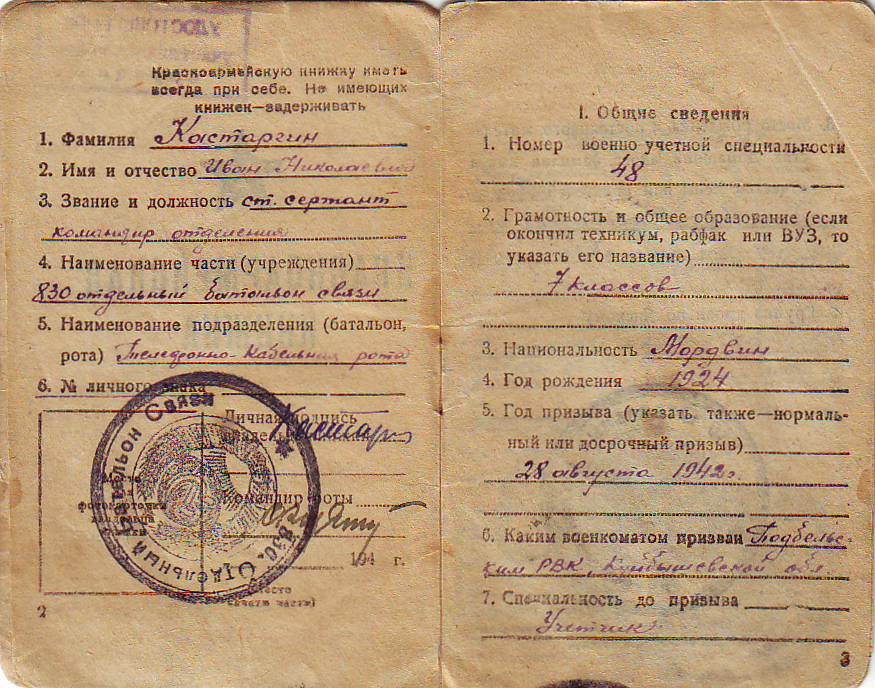 УДОСТО
Красноармейскую книжку иметь
всегда при себе. Не имеющих
книжек—задерживать
1. Фамилия Кастаргин
2. Имя и отчество Иван Николаевич
3. Звание и должность ст. сержант
командир отделения
4. Наименование части (учреждения)
830 отдельный батальон связи
5. Наименование подразделения (батальон,
рота) Телефонно-кабельная рота
6. № личного знака
Личная подпись
владельца Кастарг
Место
фотокарточки
владельца
Командир роты
194 г.
Место
печати части)
830. Отдельный Батальон Связи
2
I. Общие сведения
1. Номер военно-учетной специальности
48
2. Грамотность и общее образование (если
окончил техникум, рабфак или ВУЗ, то
указать его название)
7 классов
3. Национальность Мордвин
4. Год рождения 1924
5. Год призыва (указать также—нормаль-
ный или досрочный призыв)
28 августа 1942г.
6. Каким военкоматом призван Подбельс-
ким РВК, Куйбышевской обл.
7. Специальность до призыва
Учетчик
3